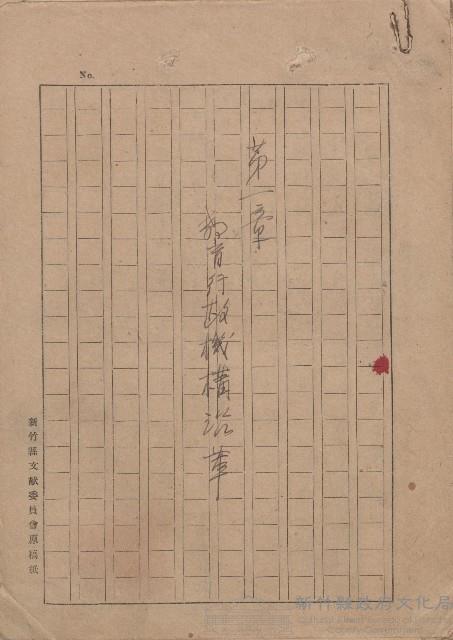 No.
第一章
教育行政機構沿革
新竹縣文献委員會原稿紙
新竹縣政府文化局
Cultural Affairs Bureau of Hsinchu
County Government